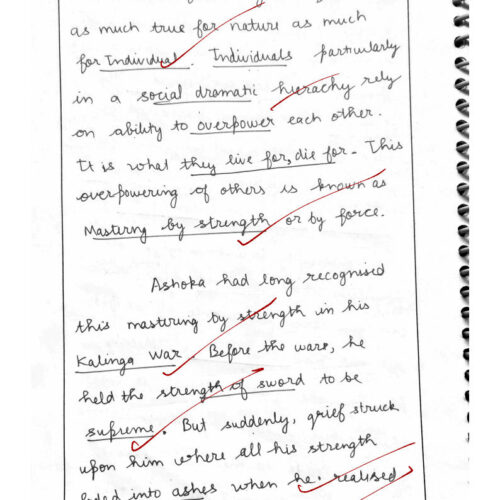 as much true for nature as much
for Individual. Individuals particularly
in a social dramatic hierachy rely
on ability to overpower each other.
It is what they live for, die for. This
overpowering of others is known as
Mastering by strength or by force.
Ashoka had long recognised
this mastering by strength in his
Kalinga War. Before the wars, he
held the strength of sword to be
supreme. But suddenly, grief struck
upon him where all his strength
into ashes when he realised